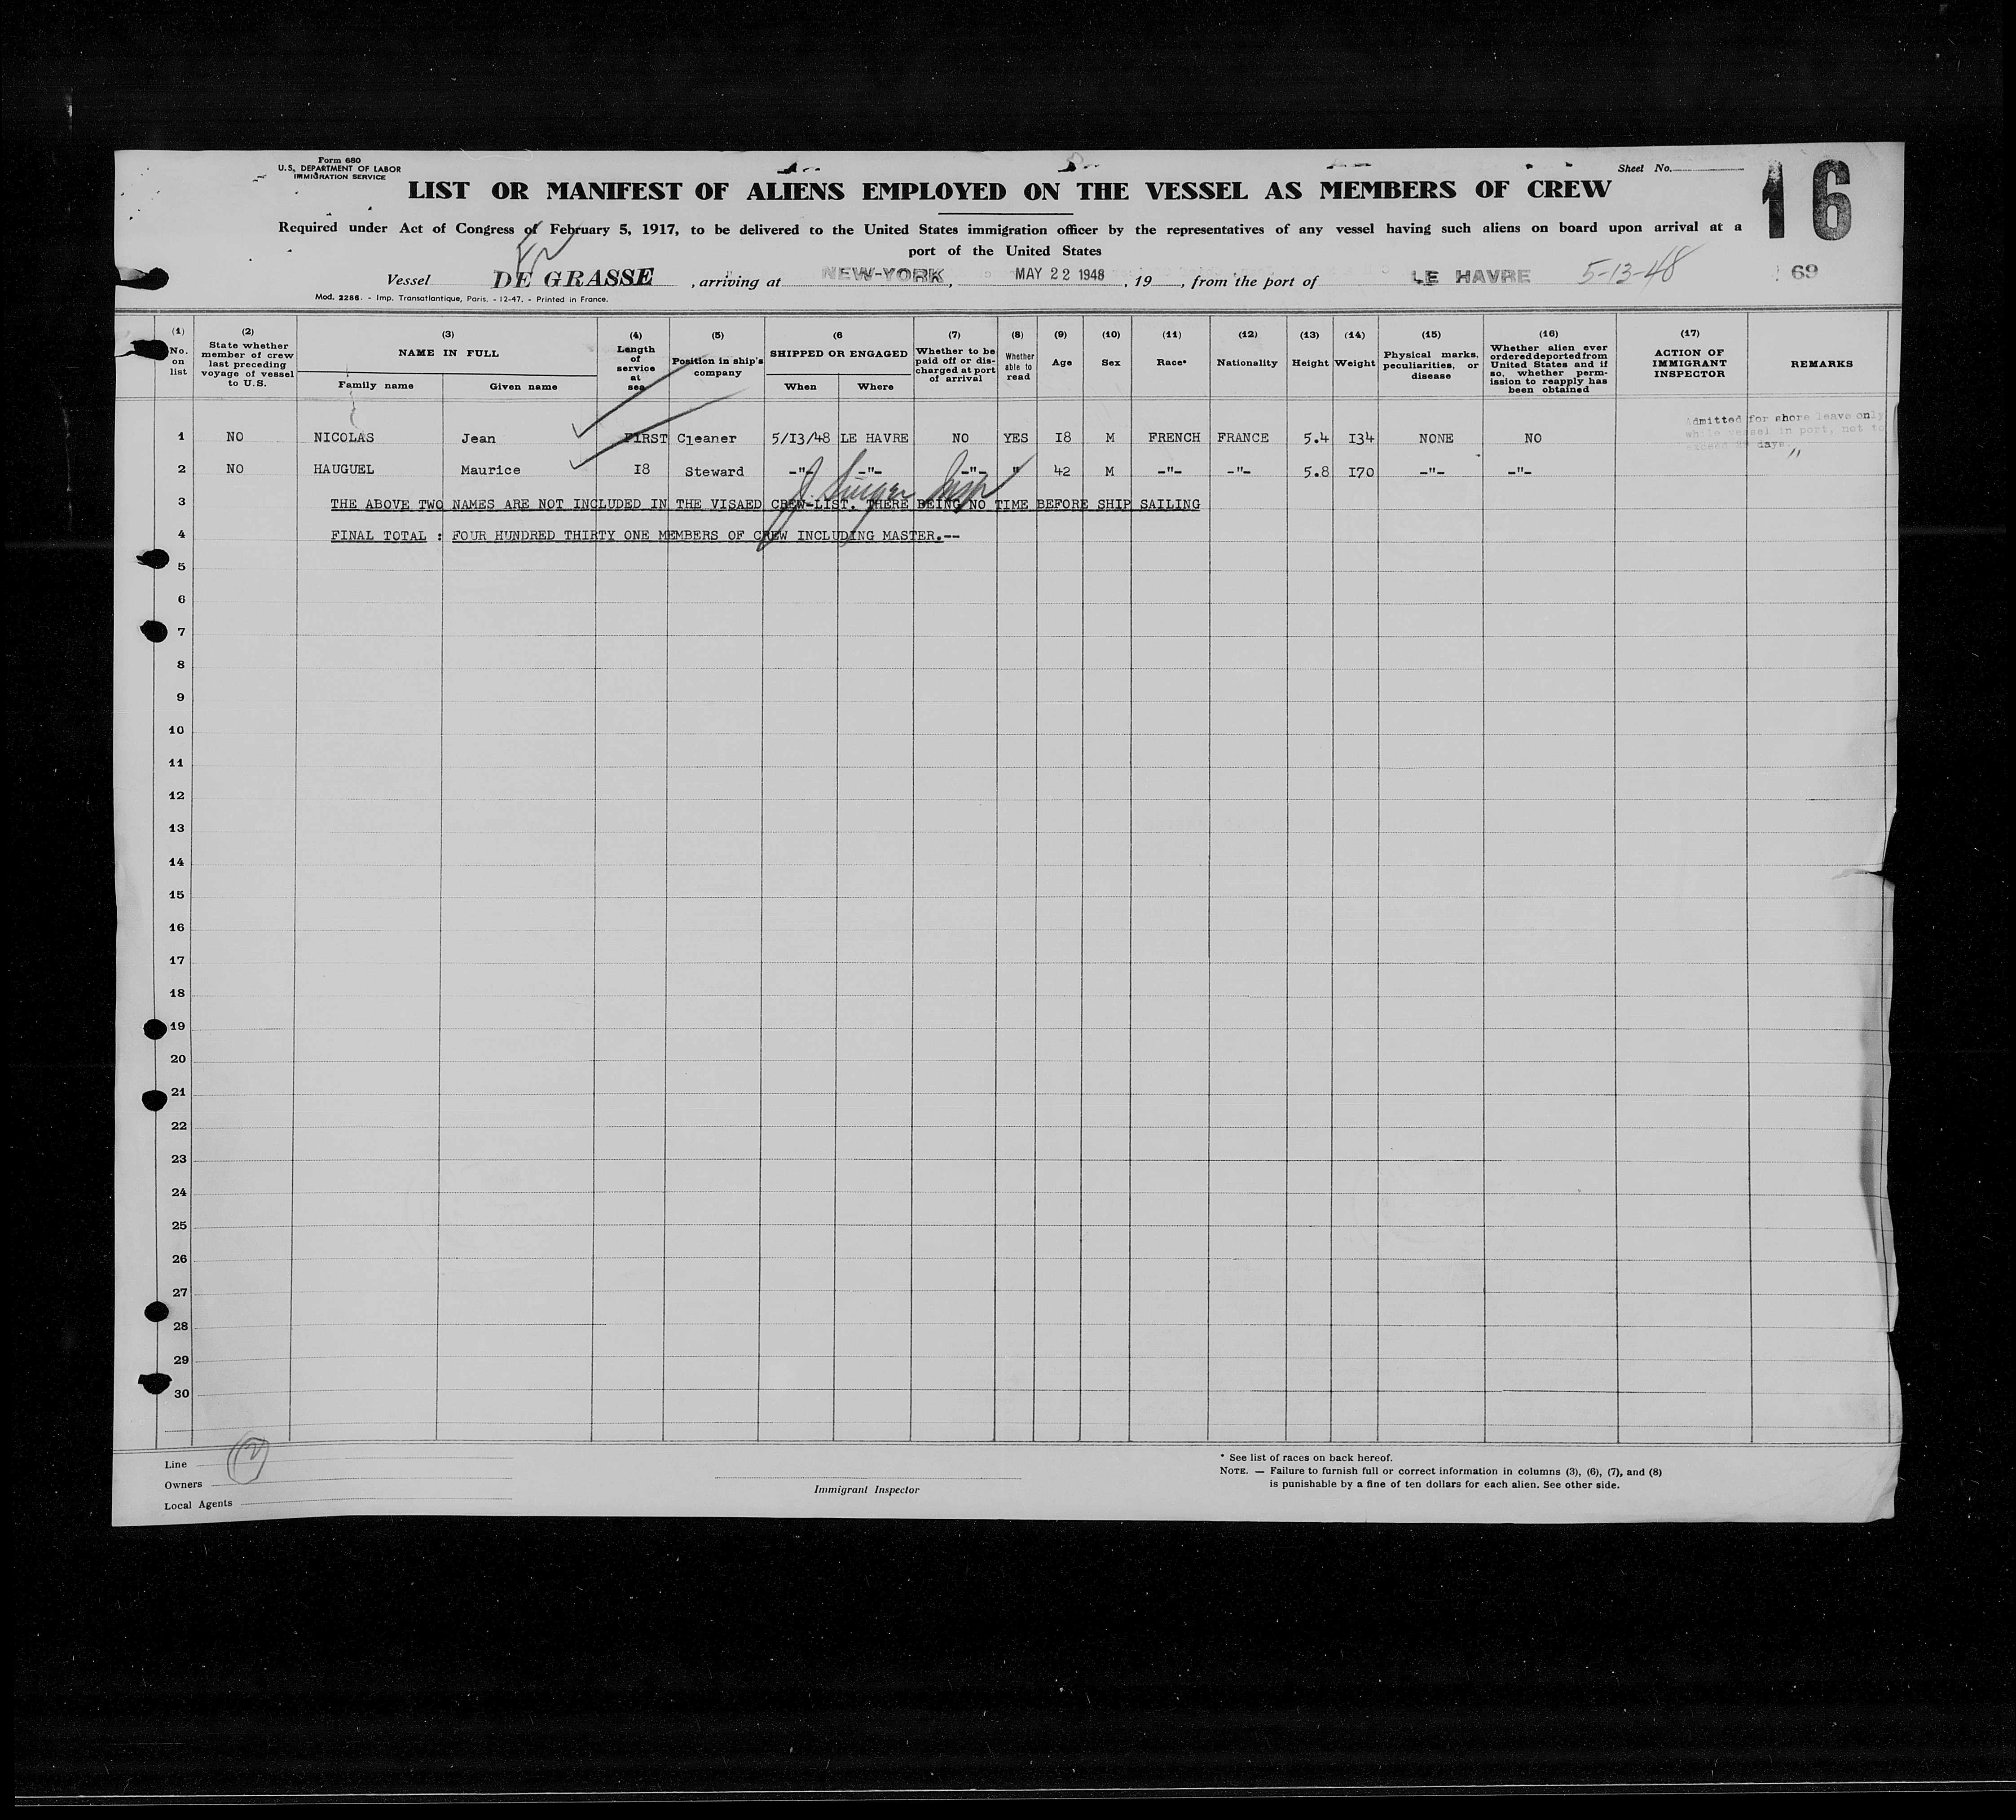 Form 680
U.S. DEPARTMENT OF LABOR
IMMIGRATION SERVICE
Sheet No.
16
LIST OR MANIFEST OF ALIENS EMPLOYED ON THE VESSEL AS MEMBERS OF CREW
Required under Act of Congress of February 5, 1917, to be delivered to the United States immigration officer by the representatives of any vessel having such aliens on board upon arrival at a
port of the United States
Vessel DE GRASSE , arriving at NEW-YORK , MAY 22 1948 , 19 , from the port of LE HAVRE 5-13-48 69
Mod. 2286. - Imp. Transatlantique, Paris. - 12-47. - Printed in France.
(1) No. on list
(2) State whether member of crew last preceding voyage of vessel to U.S.
(3) NAME IN FULL
Family name Given name
(4) Length of service at sea
(5) Position in ship's company
(6 SHIPPED OR ENGAGED
When Where
(7) Whether to be paid off or discharged at port of arrival
(8) Whether able to read
(9) Age
(10) Sex
(11) Race*
(12) Nationality
(13) Height
(14) Weight
(15) Physical marks, peculiarities, or disease
(16) Whether alien ever ordered deported from United States and if so, whether permission to reapply has been obtained
(17) ACTION OF IMMIGRANT INSPECTOR
REMARKS
Admitted for shore leave only
while vessel in port, not to
exceed 29 days.
1 NO NICOLAS Jean FIRST Cleaner 5/13/48 LE HAVRE NO YES 18 M FRENCH FRANCE 5.4 134 NONE NO
2 NO HAUGUEL Maurice 18 Steward -"- -"- -"- " 42 M -"- -"- 5.8 170 -"- -"- "
3 THE ABOVE TWO NAMES ARE NOT INCLUDED IN THE VISAED CREW-LIST. THERE BEING NO TIME BEFORE SHIP SAILING
4 FINAL TOTAL : FOUR HUNDRED THIRTY ONE MEMBERS OF CREW INCLUDING MASTER.--
5
6
7
8
9
10
11
12
13
14
15
16
17
18
19
20
21
22
23
24
25
26
27
28
29
30
Line
Owners
Local Agents
2
Immigrant Inspector
* See list of races on back hereof.
NOTE. — Failure to furnish full or correct information in columns (3), (6), (7), and (8)
is punishable by a fine of ten dollars for each alien. See other side.